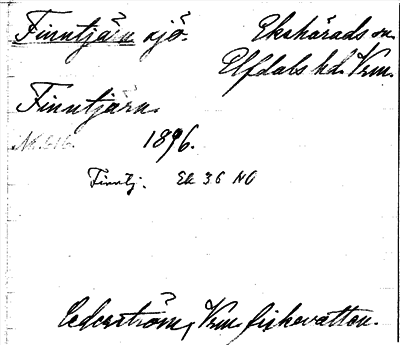 Finntjärn sjö. Ekshärads sn.
Elfdals hd. Vrm.
Finntjärn.
1896.
Finntj. Ek 36 NO
Cederström, Vrm. fiskevatten.